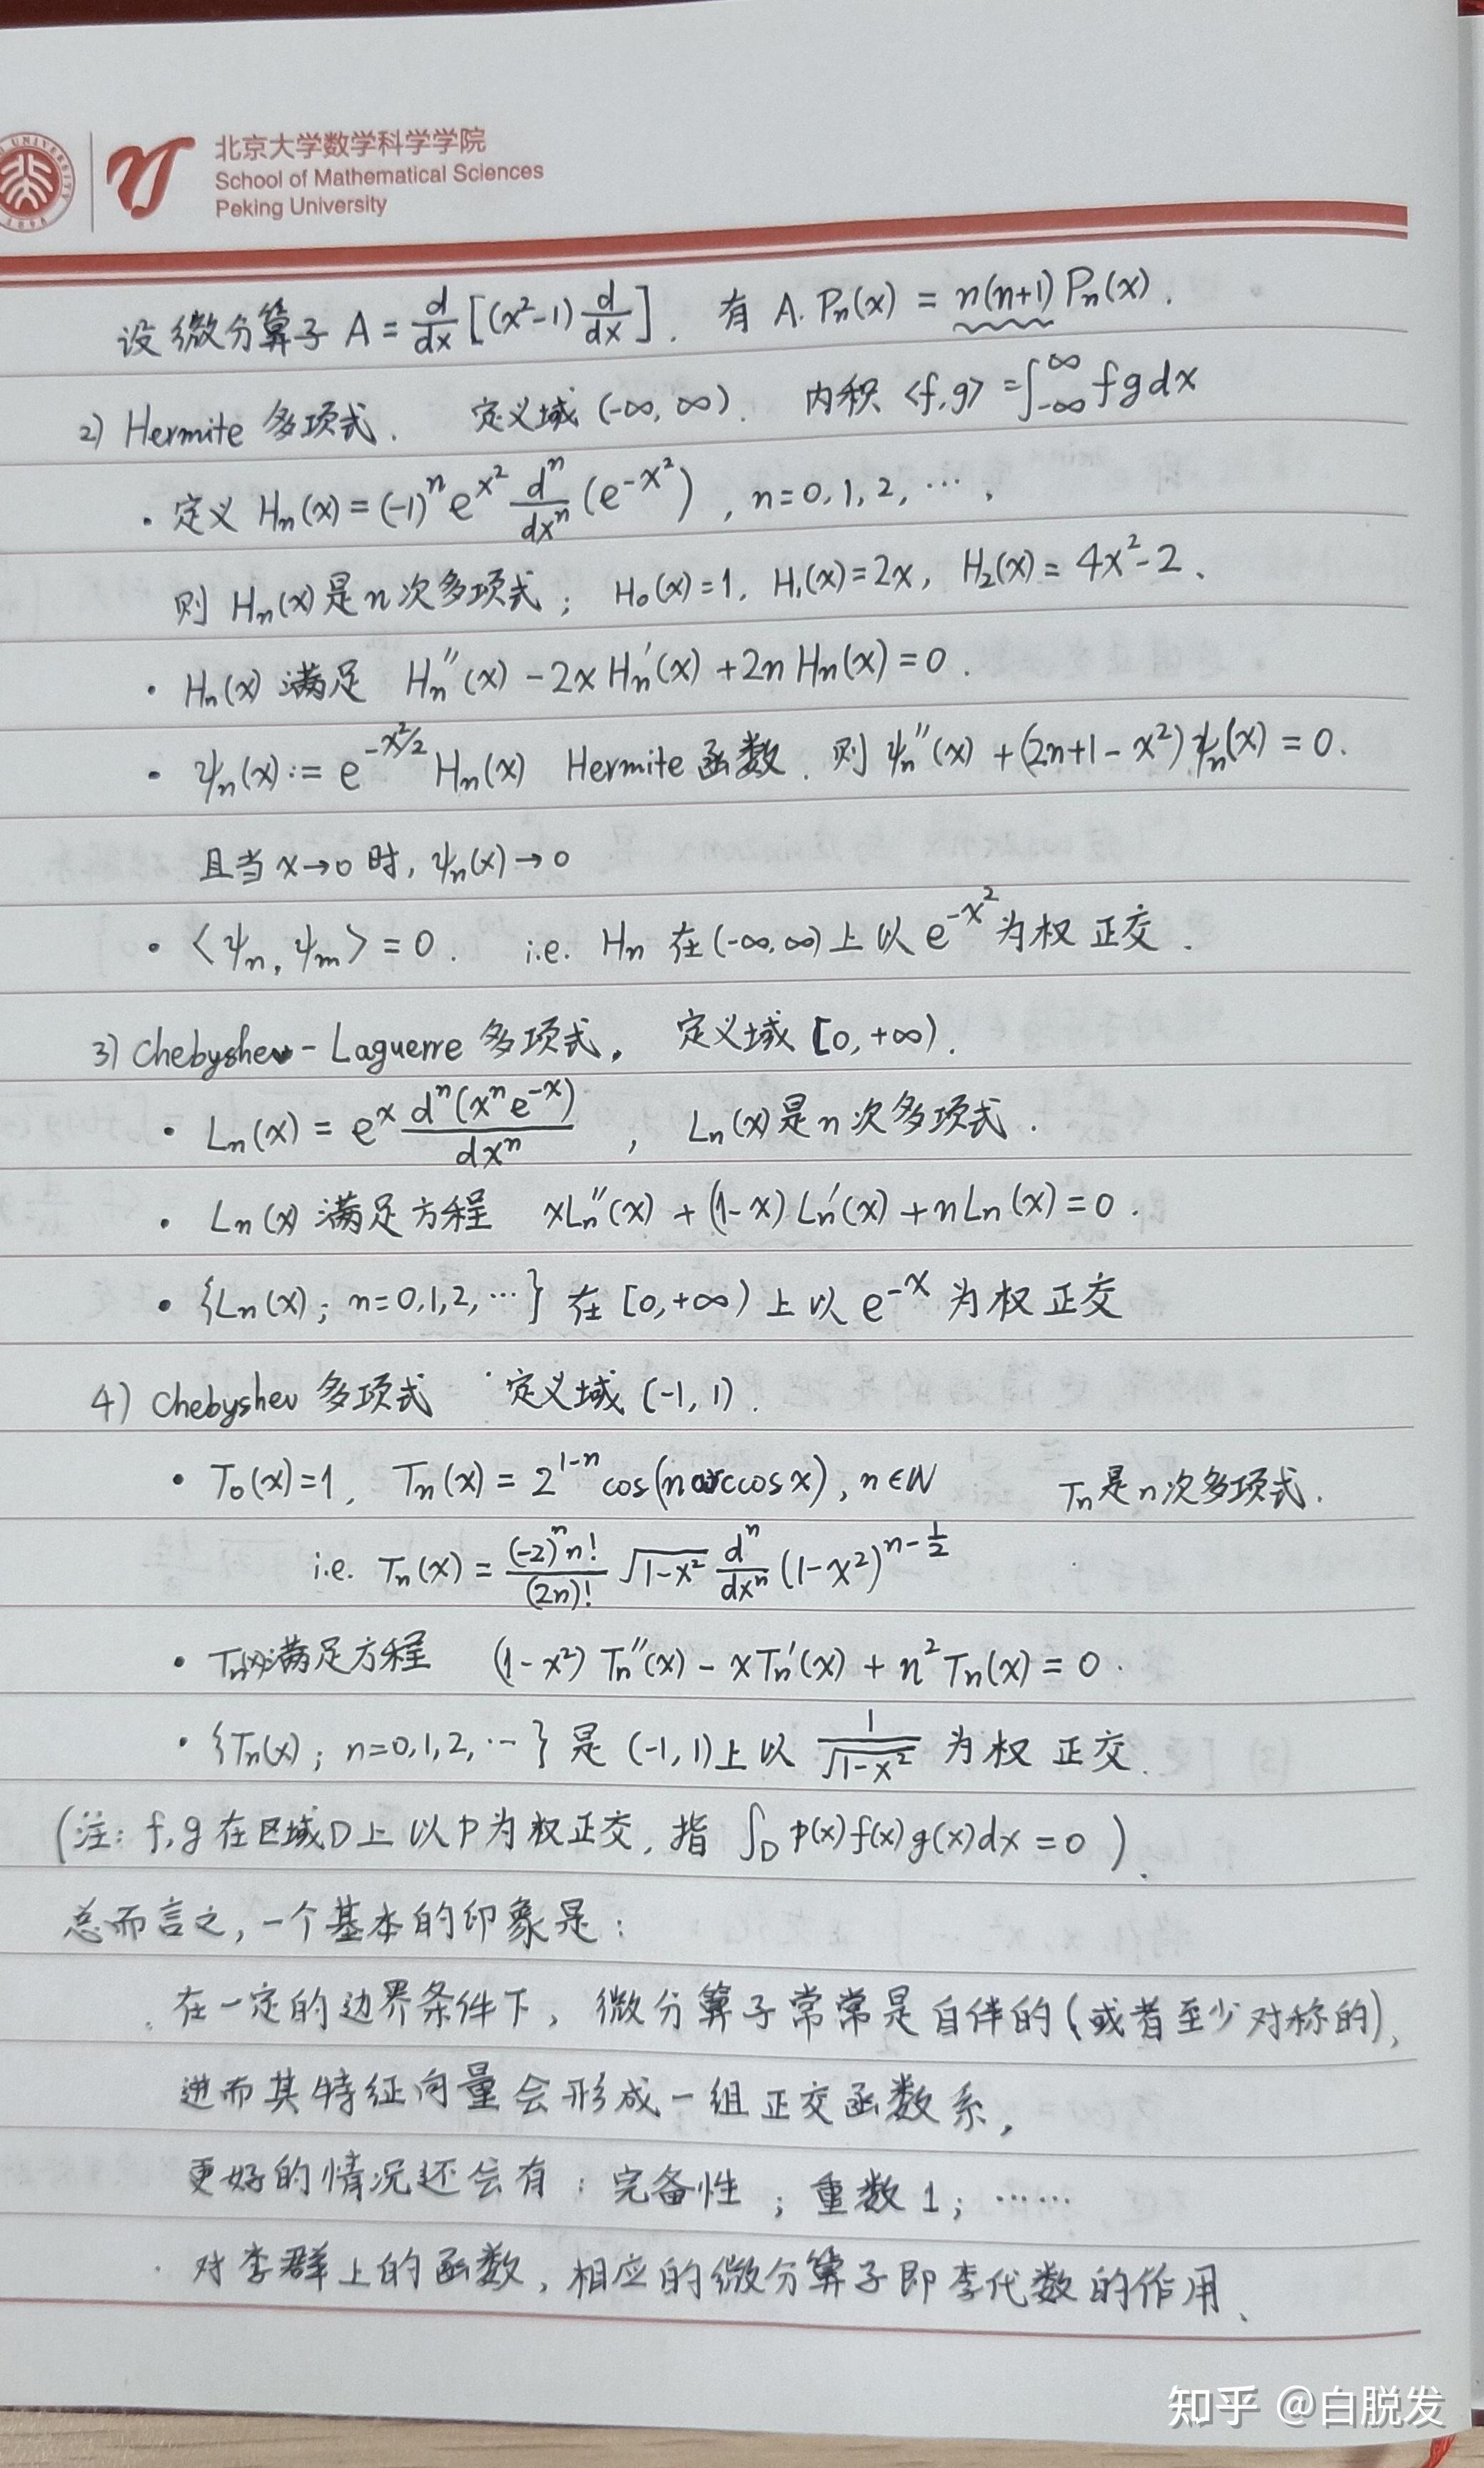 北京大学数学科学学院
School of Mathematical Sciences
Peking University
设微分算子 A = d/dx [(x²-1) d/dx]. 有 A.Pₙ(x) = n(n+1)Pₙ(x).
2) Hermite 多项式. 定义域 (-∞, ∞). 内积 <f,g> = ∫_{-∞}^{∞} fg dx
· 定义 Hₙ(x) = (-1)ⁿ e^{x²} dⁿ/dxⁿ (e^{-x²}), n=0,1,2,⋯,
则 Hₙ(x) 是 n 次多项式; H₀(x)=1, H₁(x)=2x, H₂(x)=4x²-2.
· Hₙ(x) 满足 Hₙ''(x) - 2xHₙ'(x) + 2nHₙ(x) = 0.
· ψₙ(x) := e^{-x²/2} Hₙ(x) Hermite 函数. 则 ψₙ''(x) + (2n+1-x²)ψₙ(x) = 0.
且当 x→0 时, ψₙ(x)→0
· <ψₙ, ψₘ> = 0. i.e. Hₙ 在 (-∞,∞) 上以 e^{-x²} 为权正交.
3) Chebyshev - Laguerre 多项式. 定义域 [0, +∞).
· Lₙ(x) = e^x dⁿ(xⁿe^{-x})/dxⁿ, Lₙ(x) 是 n 次多项式.
· Lₙ(x) 满足方程 xLₙ''(x) + (1-x)Lₙ'(x) + nLₙ(x) = 0.
· {Lₙ(x); n=0,1,2,⋯} 在 [0,+∞) 上以 e^{-x} 为权正交
4) Chebyshev 多项式 定义域 (-1, 1).
· T₀(x)=1, Tₙ(x) = 2^{1-n} cos(n arccos x), n∈ℕ Tₙ 是 n 次多项式.
i.e. Tₙ(x) = (-2)ⁿn!/(2n)! √(1-x²) dⁿ/dxⁿ (1-x²)^{n-1/2}
· Tₙ(x)满足方程 (1-x²)Tₙ''(x) - xTₙ'(x) + n²Tₙ(x) = 0.
· {Tₙ(x); n=0,1,2,⋯} 是 (-1,1) 上以 1/√(1-x²) 为权正交.
(注: f,g 在区域D上以 p 为权正交, 指 ∫_D p(x)f(x)g(x)dx = 0).
总而言之, 一个基本的印象是:
在一定的边界条件下, 微分算子常常是自伴的(或者至少对称的),
进而其特征向量会形成一组正交函数系,
更好的情况还会有: 完备性; 重数1; ⋯⋯
· 对李群上的函数, 相应的微分算子即李代数的作用、
知乎 @白脱发